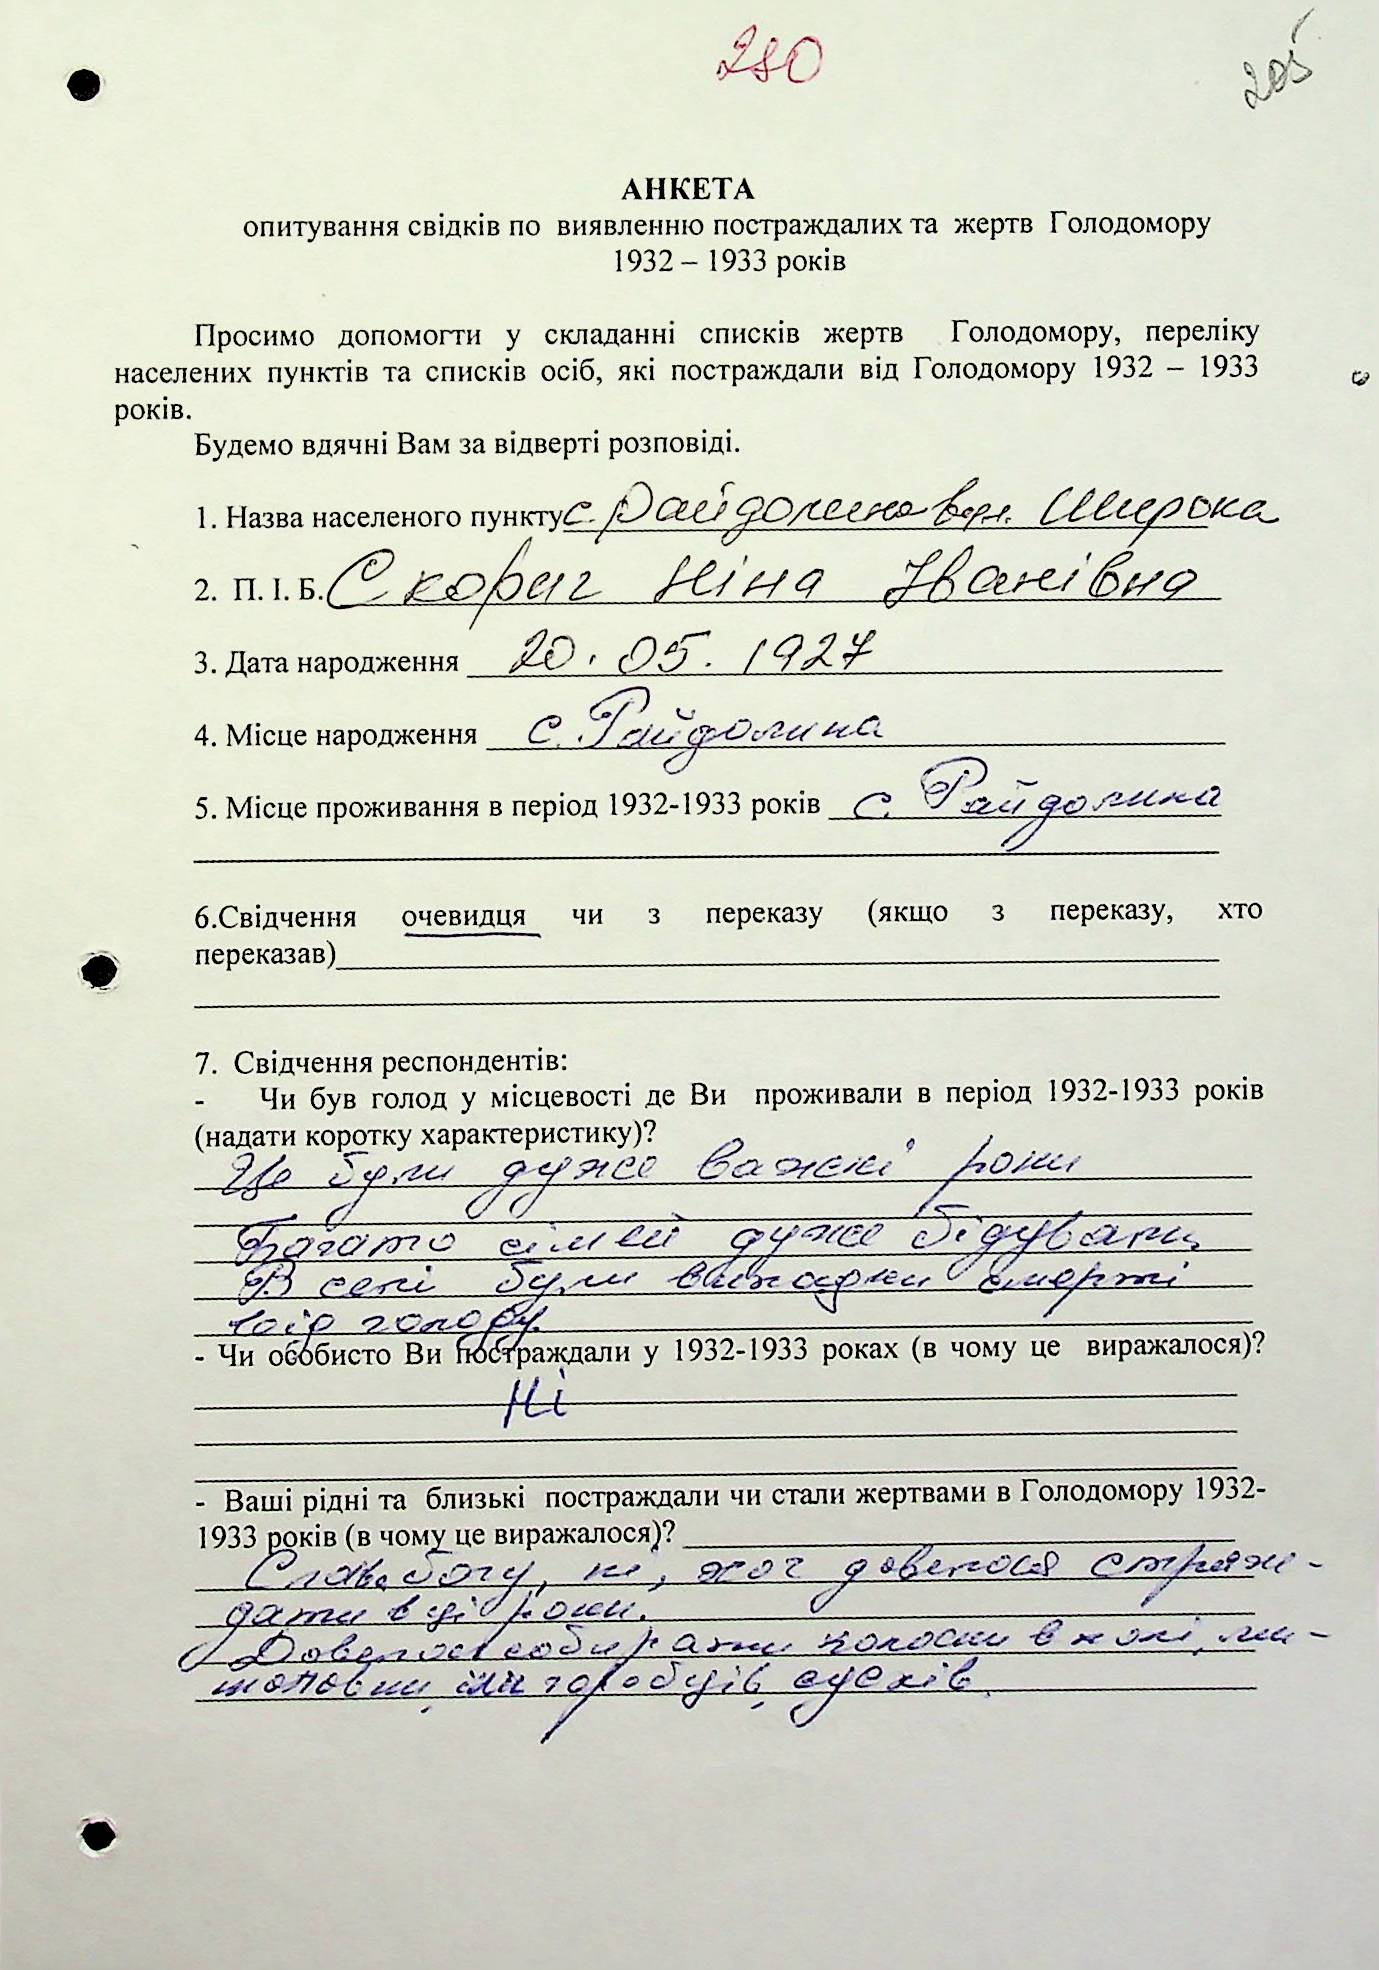 280
205
АНКЕТА
опитування свідків по виявленню постраждалих та жертв Голодомору
1932 – 1933 років
Просимо допомогти у складанні списків жертв Голодомору, переліку
населених пунктів та списків осіб, які постраждали від Голодомору 1932 – 1933
років.
Будемо вдячні Вам за відверті розповіді.
1. Назва населеного пункту с. Райдолина вул. Широка
2. П. І. Б. Ніна Іванівна
3. Дата народження 20.05.1927
4. Місце народження с. Райдолина
5. Місце проживання в період 1932-1933 років с. Райдолина
6.Свідчення очевидця чи з переказу (якщо з переказу, хто
переказав)
7. Свідчення респондентів:
- Чи був голод у місцевості де Ви проживали в період 1932-1933 років
(надати коротку характеристику)?
Це були дуже важкі роки
Багато сімей дуже бідували
В селі були випадки смерті
від голоду.
- Чи особисто Ви постраждали у 1932-1933 роках (в чому це виражалося)?
Ні
- Ваші рідні та близькі постраждали чи стали жертвами в Голодомору 1932-
1933 років (в чому це виражалося)?
Слава богу, ні, хоч довелося страж-
дати в ці роки.
Довелося собирати колоски в полі, ми-
шоловки, їли горобців, сусліків.